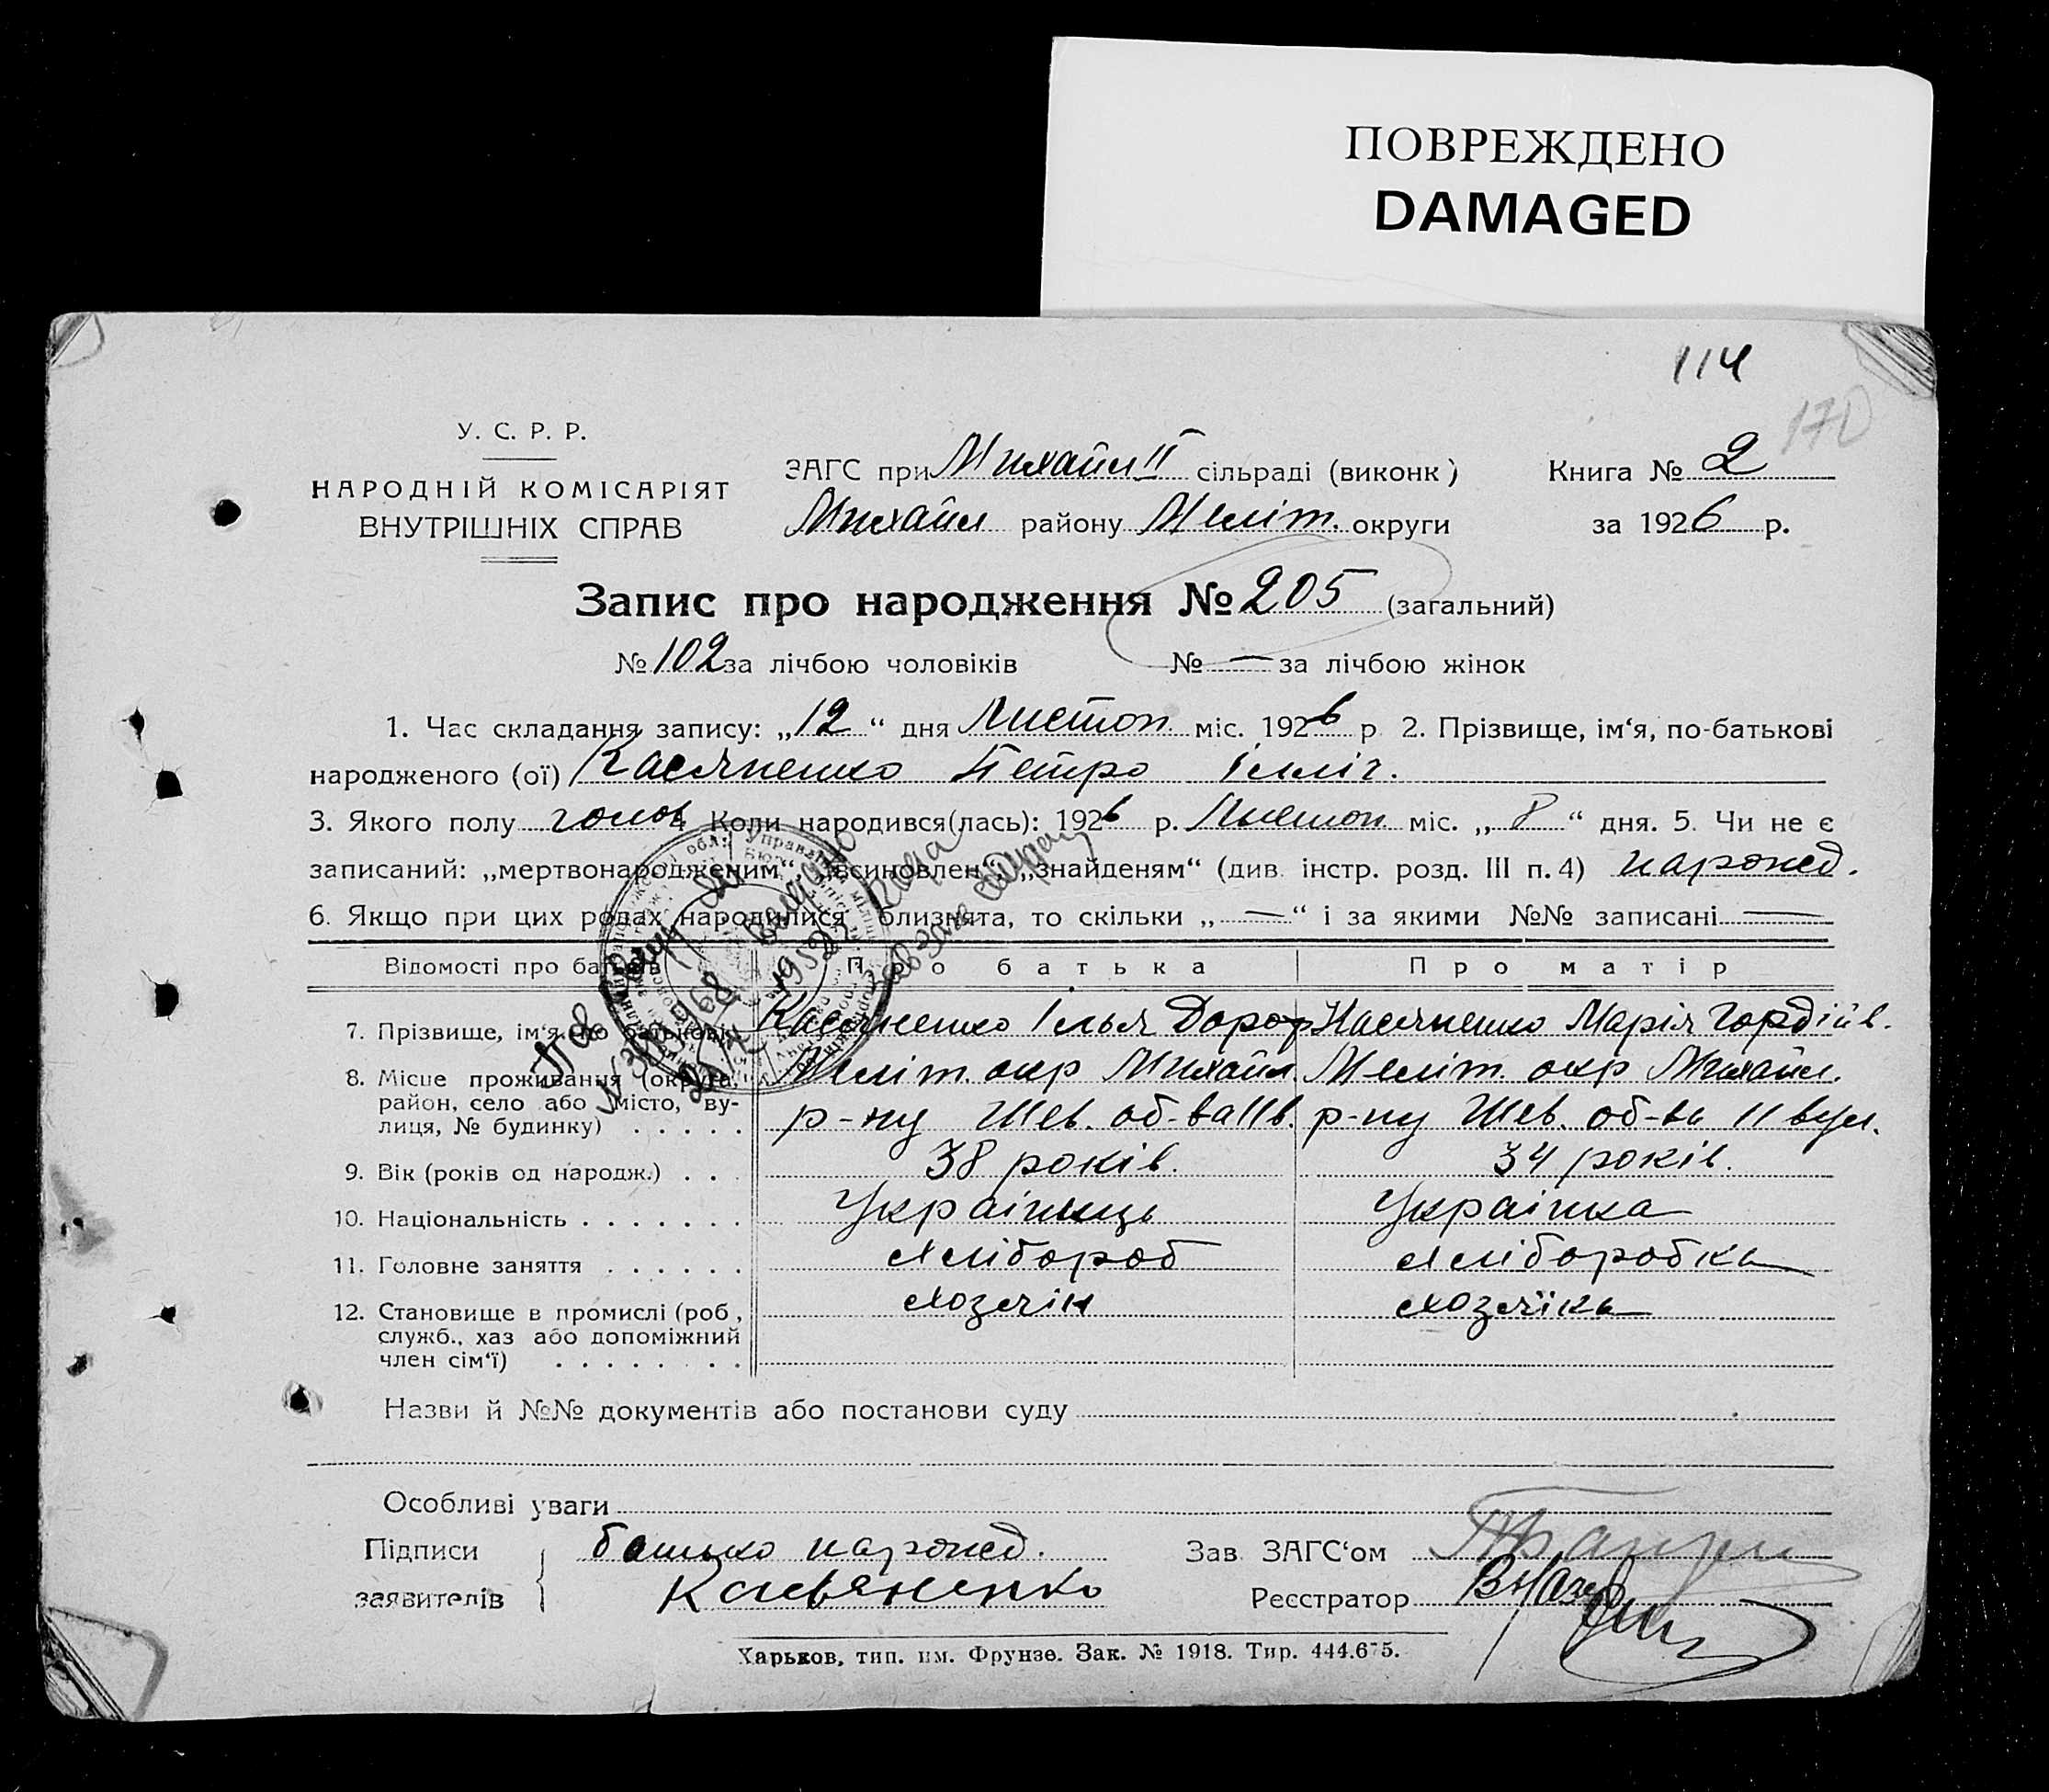 ПОВРЕЖДЕНО
DAMAGED
114
170
У. С. Р. Р.
НАРОДНІЙ КОМІСАРІЯТ
ВНУТРІШНІХ СПРАВ
ЗАГС при Михайл II сільраді (виконк)
Михайл району Меліт. округи
Книга № 2
за 1926 р.
Запис про народження № 205 (загальний)
№ 102 за лічбою чоловіків № — за лічбою жінок
1. Час складання запису: „12“ дня Листоп. міс. 1926 р 2. Прізвище, ім‘я, по-батькові
народженого (ої) Касяненко Петро Ілліч.
3. Якого полу чолов 4 Коли народився(лась): 1926 р. Листоп міс. „8“ дня. 5. Чи не є
записаний: „мертвонародженим“, „всиновлен“, „знайденям“ (див. інстр. розд. III п. 4) нарожд.
6. Якщо при цих родах народилися близнята, то скільки „—“ і за якими №№ записані —
Відомості про батьків Про батька Про матір
7. Прізвище, ім‘я по батькові Касяненко Ілья Дороф Касяненко Марія Гордіїв.
8. Місце проживання (округа, Меліт. окр Михайл. Меліт. окр Михайл.
район, село або місто, ву-
лиця, № будинку) р-ну Шев. об-ва 11 в. р-ну Шев. об-ва 11 вул.
9. Вік (років од народж.) 38 років. 34 років.
10. Національність Українець Українка
11. Головне заняття хлібороб хліборобка
12. Становище в промислі (роб, хозяїн хозяїка
служб., хаз або допоміжний
член сім‘ї)
Назви й №№ документів або постанови суду
Особливі уваги
Підписи батько нарожд. Зав ЗАГС‘ом
заявителів Касьяненко Реєстратор
Харьков, тип. им. Фрунзе. Зак. № 1918. Тир. 444.675.